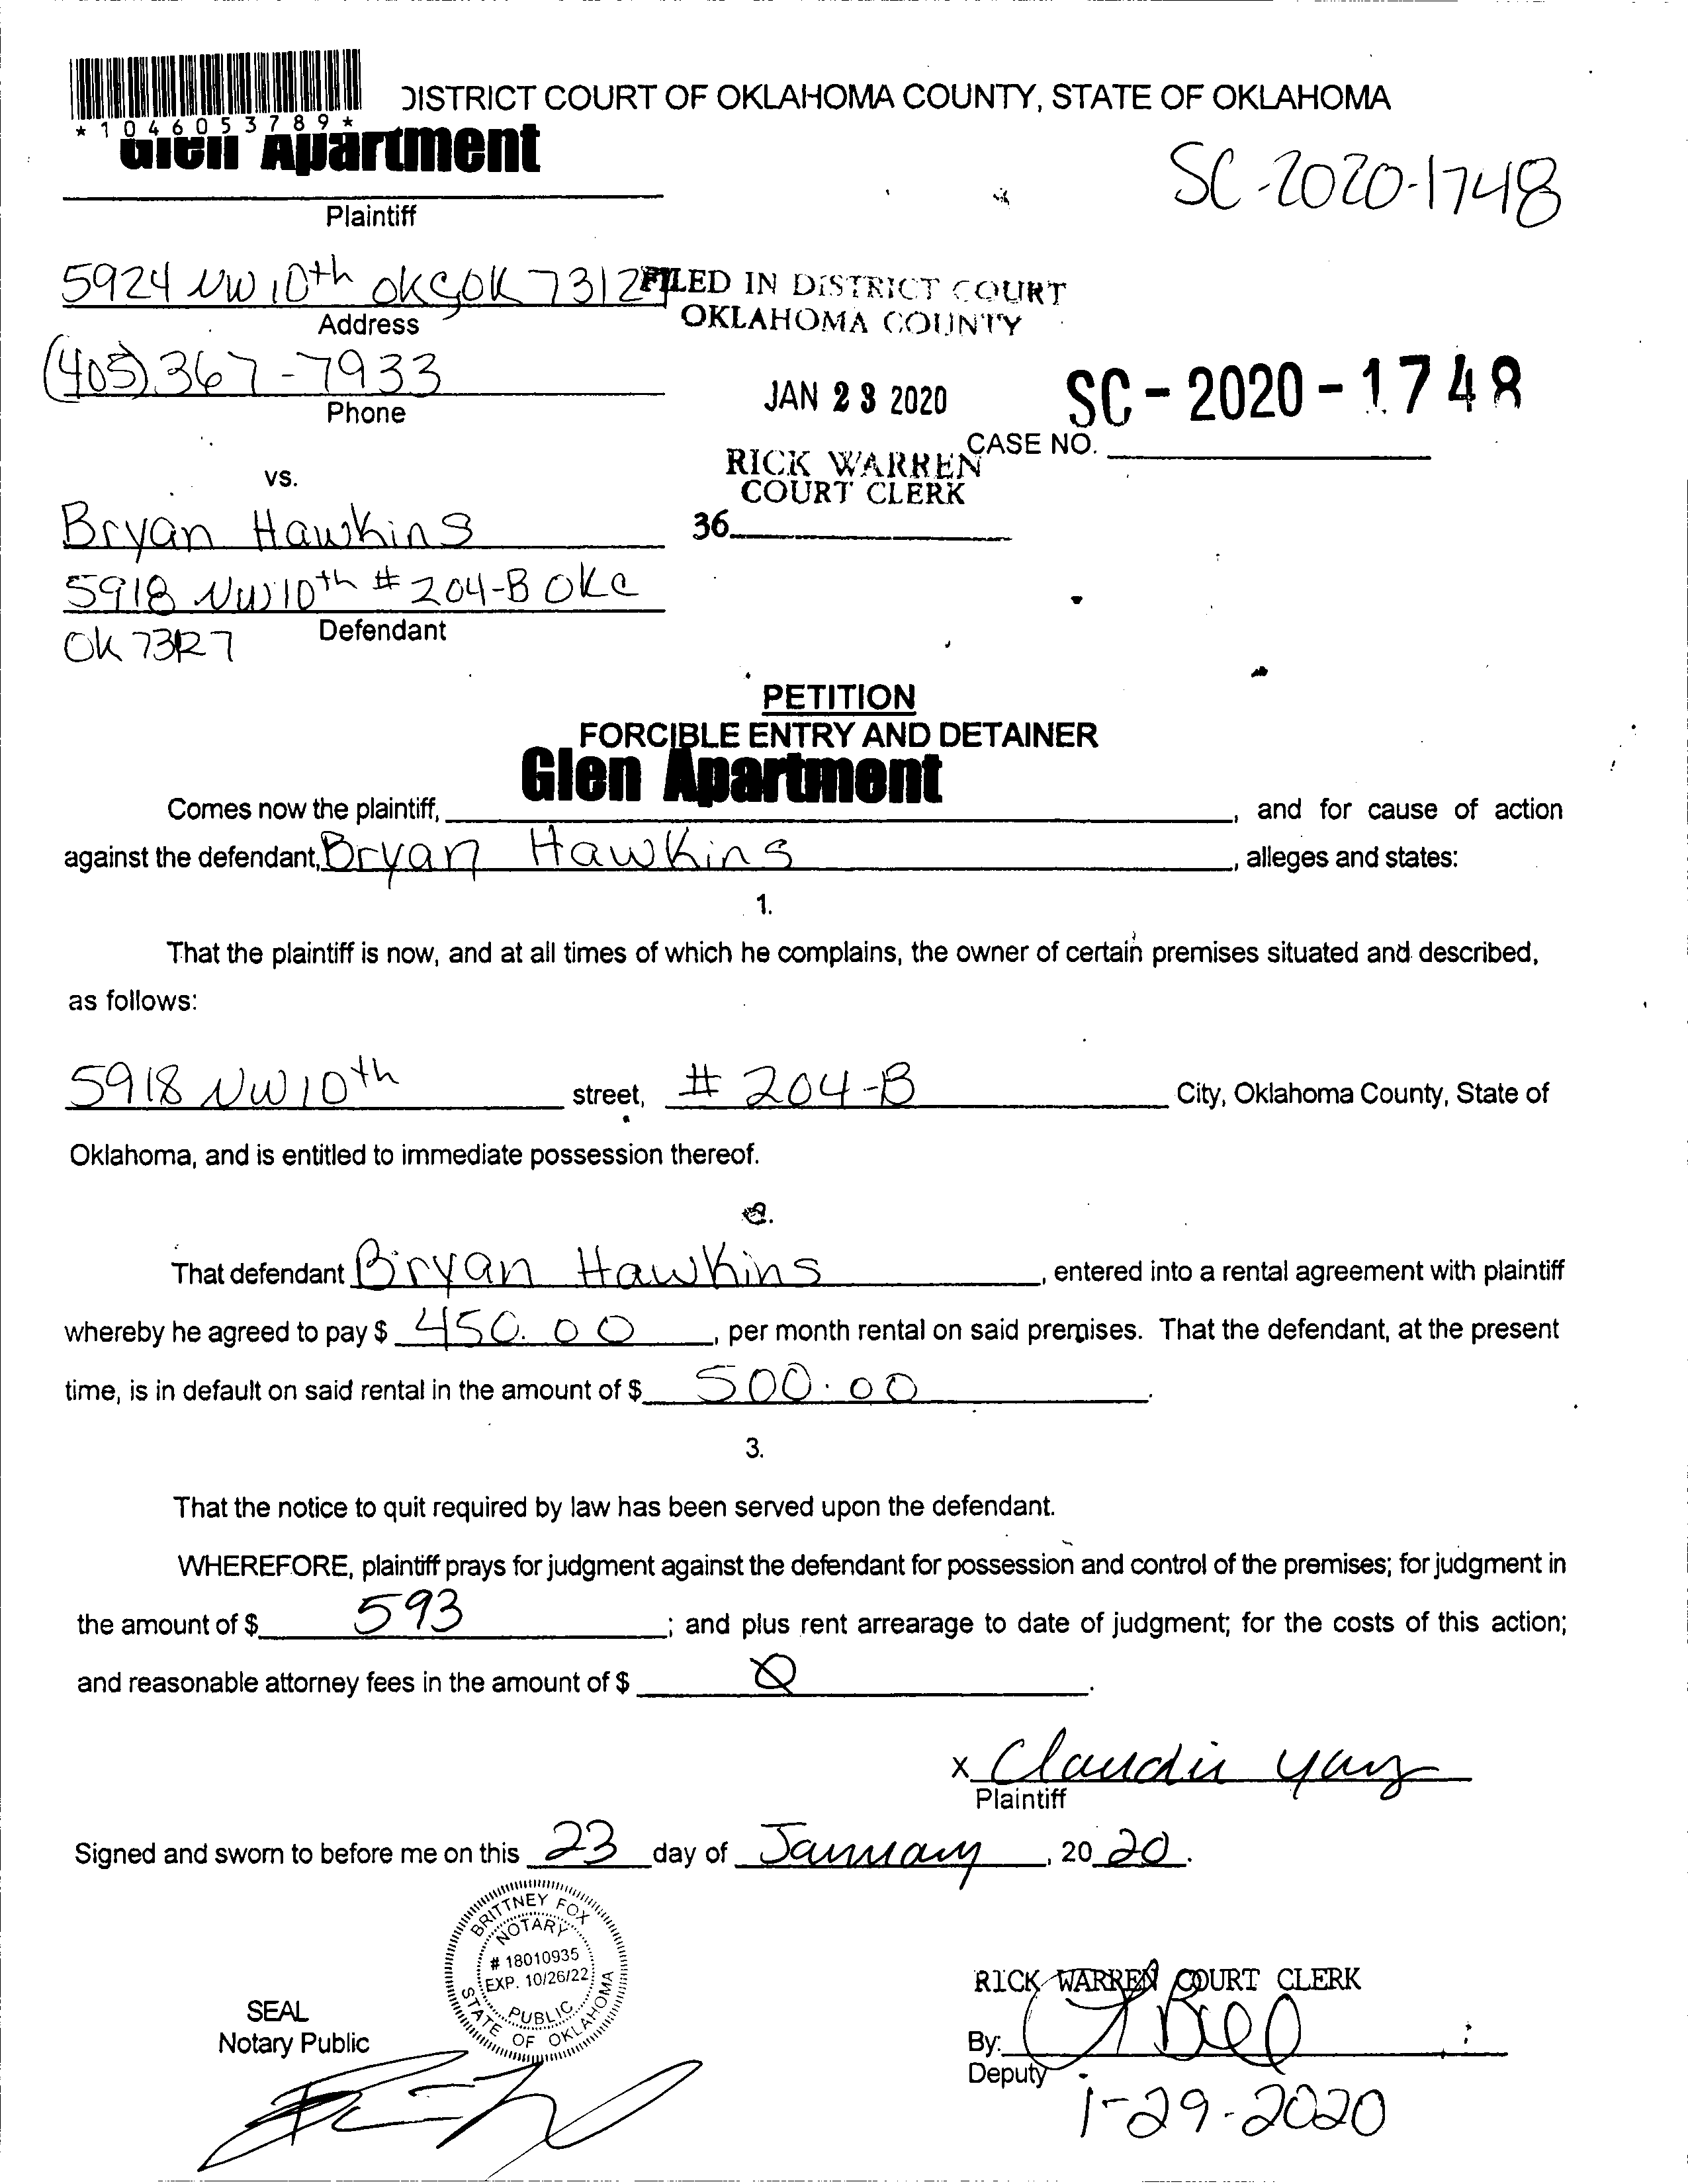 *1046053789*
DISTRICT COURT OF OKLAHOMA COUNTY, STATE OF OKLAHOMA
Glen Apartment
SC-2020-1748
Plaintiff
5924 NW 10th OKC, OK 73127
FILED IN DISTRICT COURT
OKLAHOMA COUNTY
Address
(405) 367-7933
Phone
JAN 23 2020
SC-2020-1748
CASE NO.
RICK WARREN
COURT CLERK
36
vs.
Bryan Hawkins
5918 NW 10th # 204-B OKC
Defendant
OK 73127
PETITION
FORCIBLE ENTRY AND DETAINER
Comes now the plaintiff, Glen Apartment, and for cause of action
against the defendant, Bryan Hawkins, alleges and states:
1.
That the plaintiff is now, and at all times of which he complains, the owner of certain premises situated and described,
as follows:
5918 NW 10th street, # 204-B City, Oklahoma County, State of
Oklahoma, and is entitled to immediate possession thereof.
2.
That defendant Bryan Hawkins, entered into a rental agreement with plaintiff
whereby he agreed to pay $ 450.00, per month rental on said premises. That the defendant, at the present
time, is in default on said rental in the amount of $ 500.00.
3.
That the notice to quit required by law has been served upon the defendant.
WHEREFORE, plaintiff prays for judgment against the defendant for possession and control of the premises; for judgment in
the amount of $ 593; and plus rent arrearage to date of judgment; for the costs of this action;
and reasonable attorney fees in the amount of $ 0.
x Claudia
Plaintiff
Signed and sworn to before me on this 23 day of January, 2020.
BRITTNEY FOX
NOTARY
# 18010935
EXP. 10/26/22
PUBLIC
STATE OF OKLAHOMA
SEAL
Notary Public
RICK WARREN COURT CLERK
By:
Deputy
1-29-2020